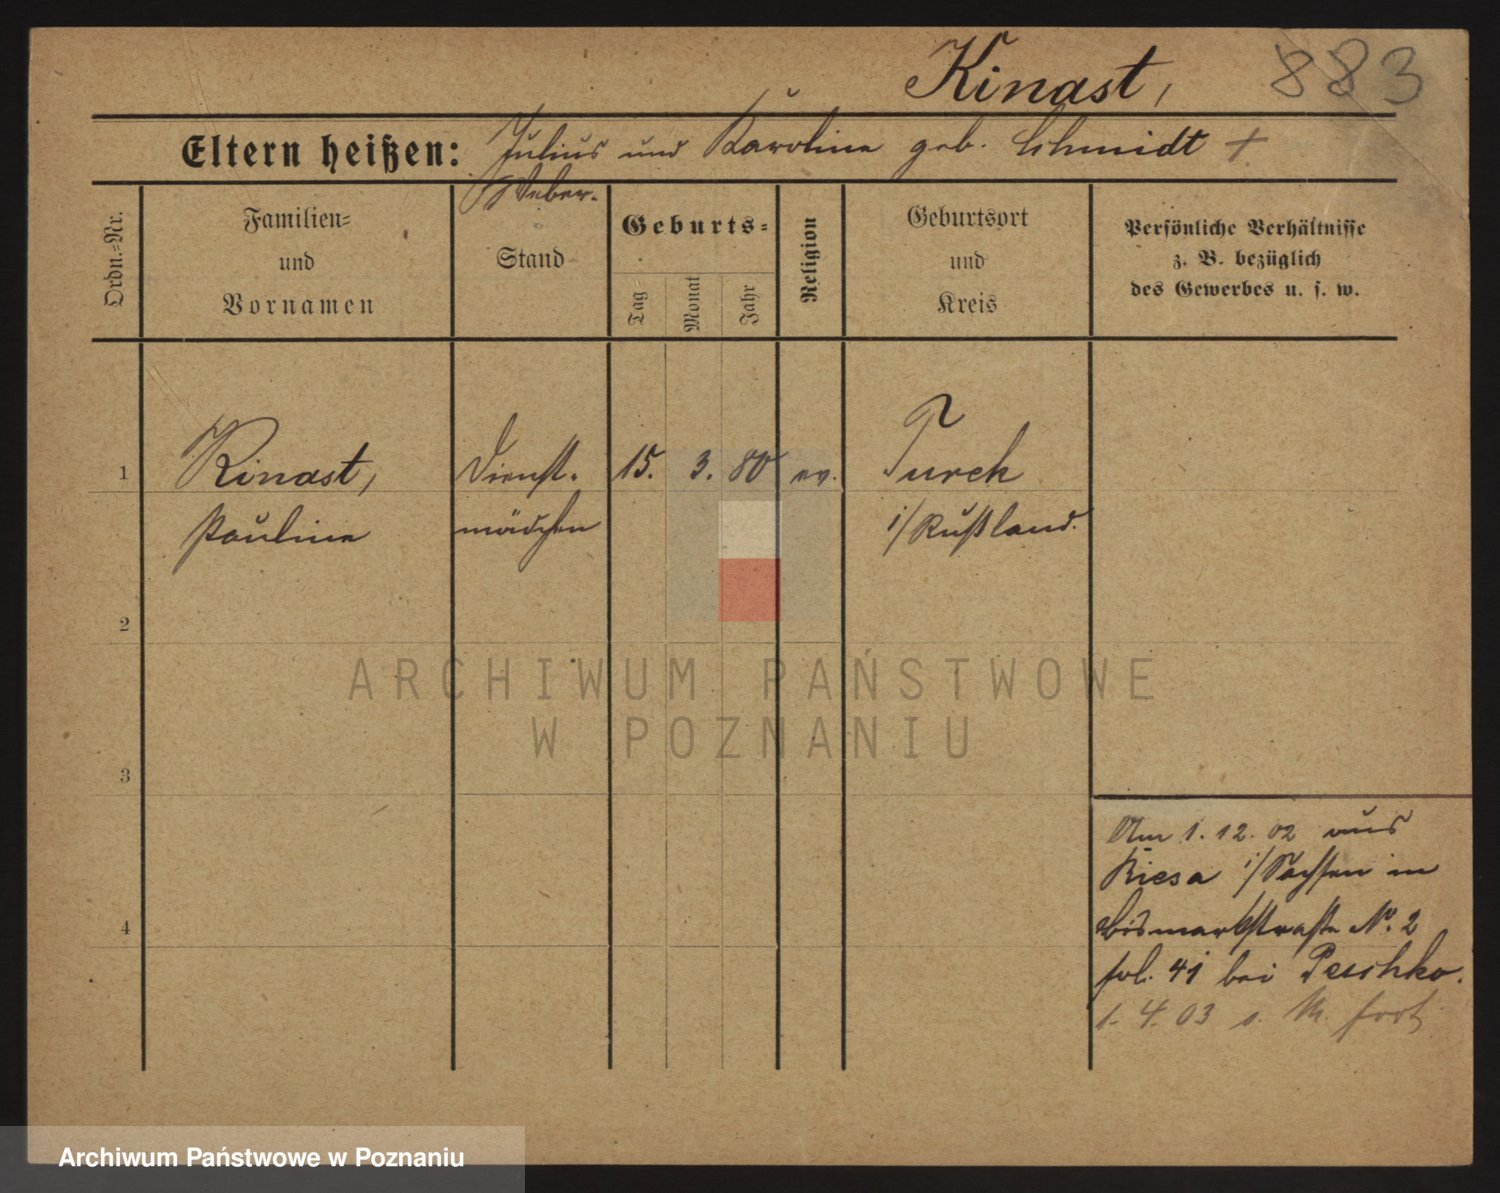 Kinast, 883
Eltern heißen: Julius und Karoline geb. Schmidt +
Weber.
Ordn.=Nr.
Familien=
und
Vornamen
Stand
Geburts=
Tag
Monat
Jahr
Religion
Geburtsort
und
Kreis
Persönliche Verhältnisse
z. B. bezüglich
des Gewerbes u. s. w.
1 Kinast, Dienst- 15. 3. 80 ev. Turek
Pauline mädchen i/Rußland.
2
3
4
Am 1.12.02 aus
Riesa i/Sachsen in
Bismarkstraße Nr. 2
fol. 41 bei Peschko.
1. 4. 03 fort
ARCHIWUM PAŃSTWOWE
W POZNANIU
Archiwum Państwowe w Poznaniu